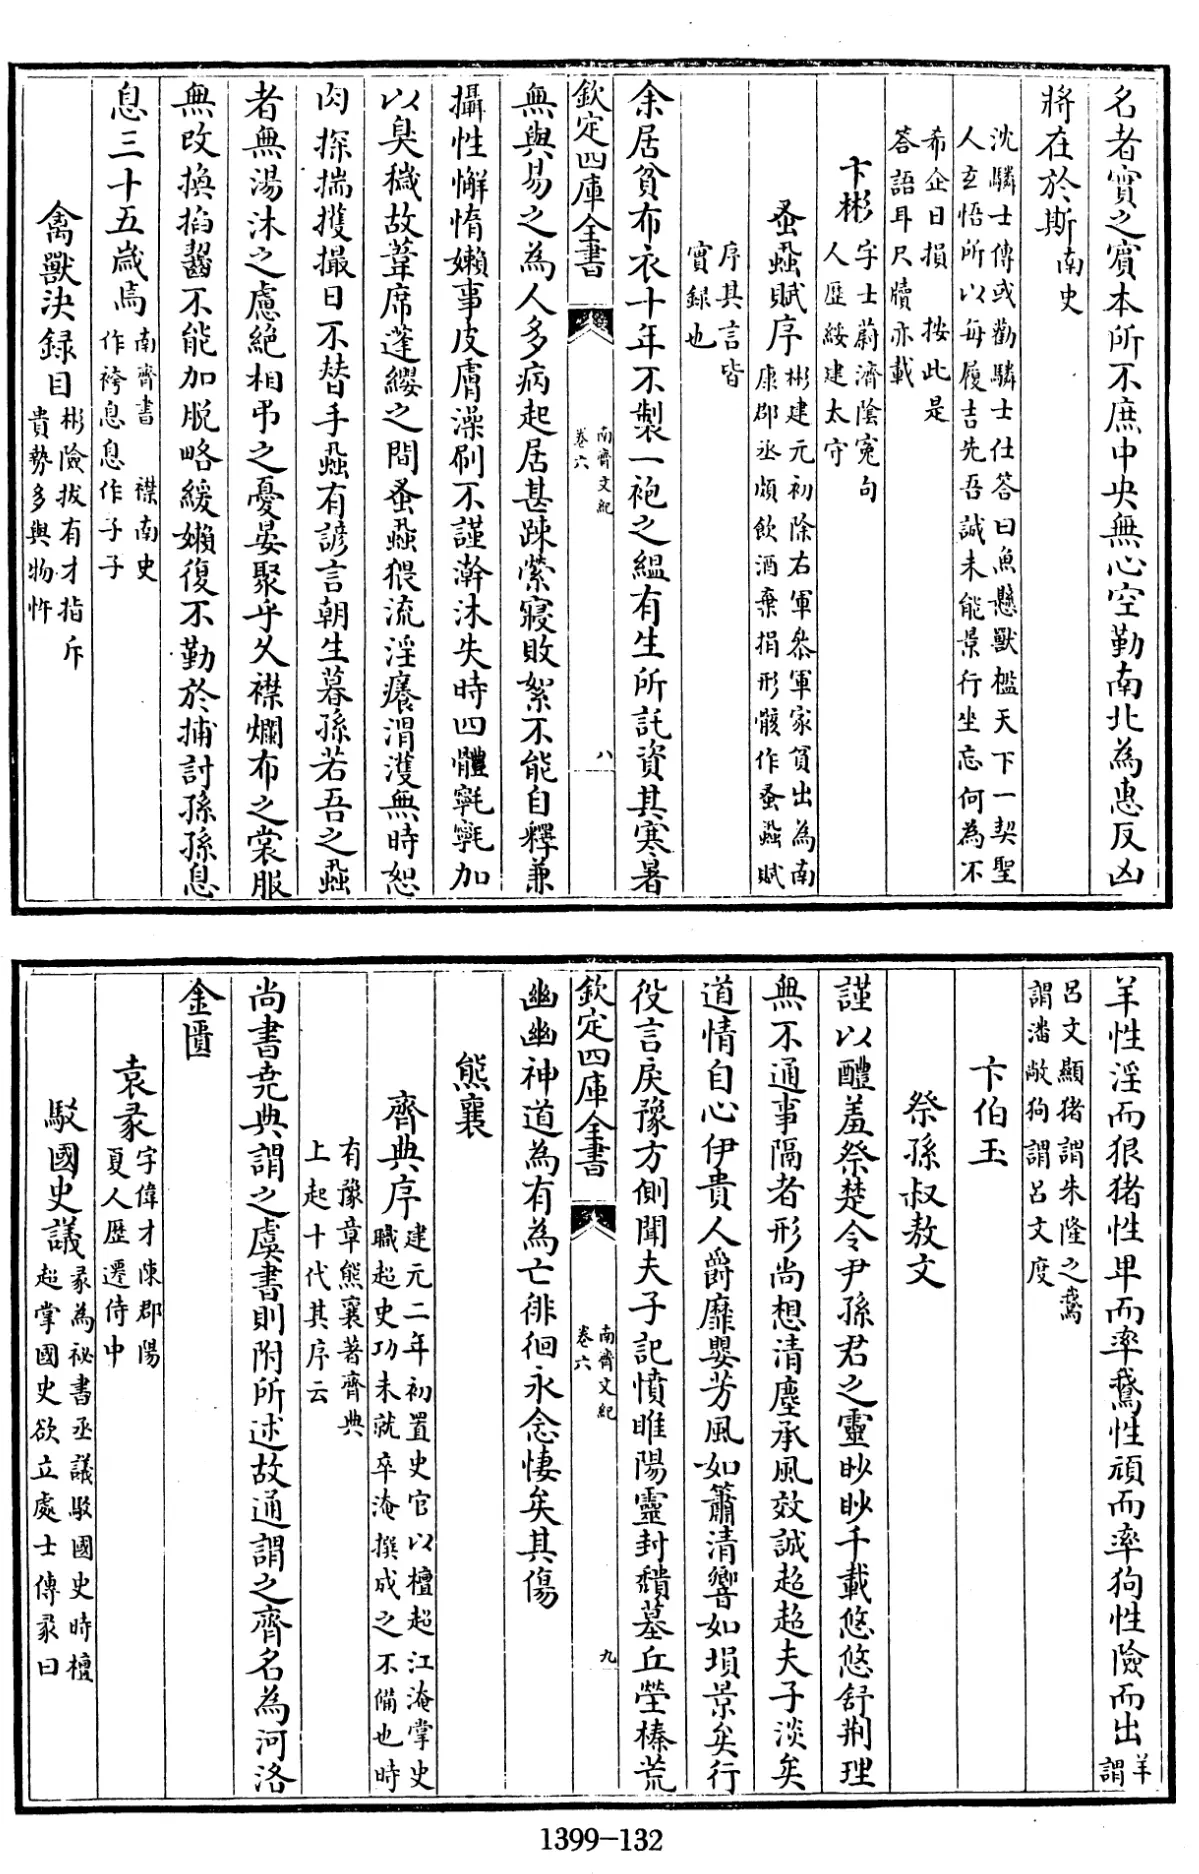 名者實之賓本所不庶中央無心空勤南北為惠反凶
將在於斯南史
沈驎士傳或勸驎士仕答曰魚懸獸檻天下一契聖
人玄悟所以每履吉先吾誠未能景行坐忘何為不
希企日損 按此是
答語耳尺牘亦載
卞彬字士蔚濟陰冤句
人歷綏建太守
蚤蝨賦序彬建元初除右軍叅軍家貧出為南
康郡丞頗飲酒棄捐形骸作蚤蝨賦
序其言皆
實録也
余居貧布衣十年不製一袍之緼有生所託資其寒暑
欽定四庫全書
南齊文紀
卷六
八
無與易之為人多病起居甚踈縈寢敗絮不能自釋兼
攝性懈惰嬾事皮膚澡刷不謹澣沐失時四體𣰦𣰦加
以臭穢故葦席蓬纓之間蚤蝨猥流淫癢渭濩無時恕
肉探揣擭撮日不替手蝨有諺言朝生暮孫若吾之蝨
者無湯沐之慮絶相弔之憂晏聚乎久襟爛布之裳服
無改換掐齧不能加脱略緩嬾復不勤於捕討孫孫息
息三十五歲焉南齊書 襟南史
作袴息息作子子
禽獸決録目彬險拔有才指斥
貴勢多與物忤
羊性淫而狠猪性卑而率鵞性頑而率狗性險而出羊
謂
呂文顯猪謂朱隆之鵞
謂潘敞狗謂呂文度
卞伯玉
祭孫叔敖文
謹以醴羞祭楚令尹孫君之靈眇眇千載悠悠舒荆理
無不通事隔者形尚想清塵承風效誠超超夫子淡矣
道情自心伊貴人爵靡嬰芳風如簫清響如塤景矣行
役言戾豫方側聞夫子記憤睢陽靈封穨墓丘塋榛荒
欽定四庫全書
南齊文紀
卷六
九
幽幽神道為有為亡徘徊永念悽矣其傷
熊襄
齊典序建元二年初置史官以檀超江淹掌史
職超史功未就卒淹撰成之不備也時
有豫章熊襄著齊典
上起十代其序云
尚書堯典謂之虞書則附所述故通謂之齊名為河洛
金匱
袁彖字偉才陳郡陽
夏人歴遷侍中
駁國史議彖為祕書丞議駁國史時檀
超掌國史欲立處士傳彖曰
1399-132